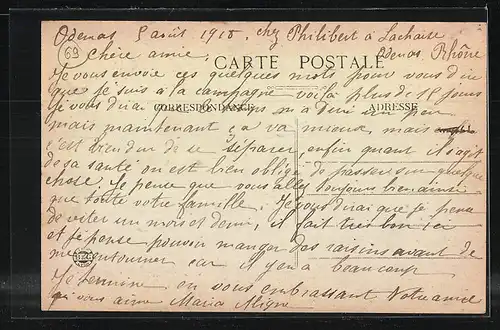 Odenas 5 août 1918. chez Philibert à Lachaise
69
Odenas Rhône
Chère amie,
CARTE POSTALE
Je vous envoie ces quelques mots pour vous dire
que je suis à la campagne voilà plus de 15 jours
CORRESPONDANCE
ADRESSE
Je vous dirai que le temps m'a duré un peu
mais maintenant ça va mieux, mais
c'est bien dur de se séparer, enfin quant il s'agit
de sa santé on est bien obligé de passer sur quelque
chose. Je pense que vous allez toujours bien ainsi
que toute votre famille. Je vous dirai que je pense
de rester un mois et demi, il fait très bon ici
et je pense pouvoir manger des raisins avant de
m'en retourner car il y en a beaucoup
Je termine en vous embrassant Votre amie
qui vous aime Maria